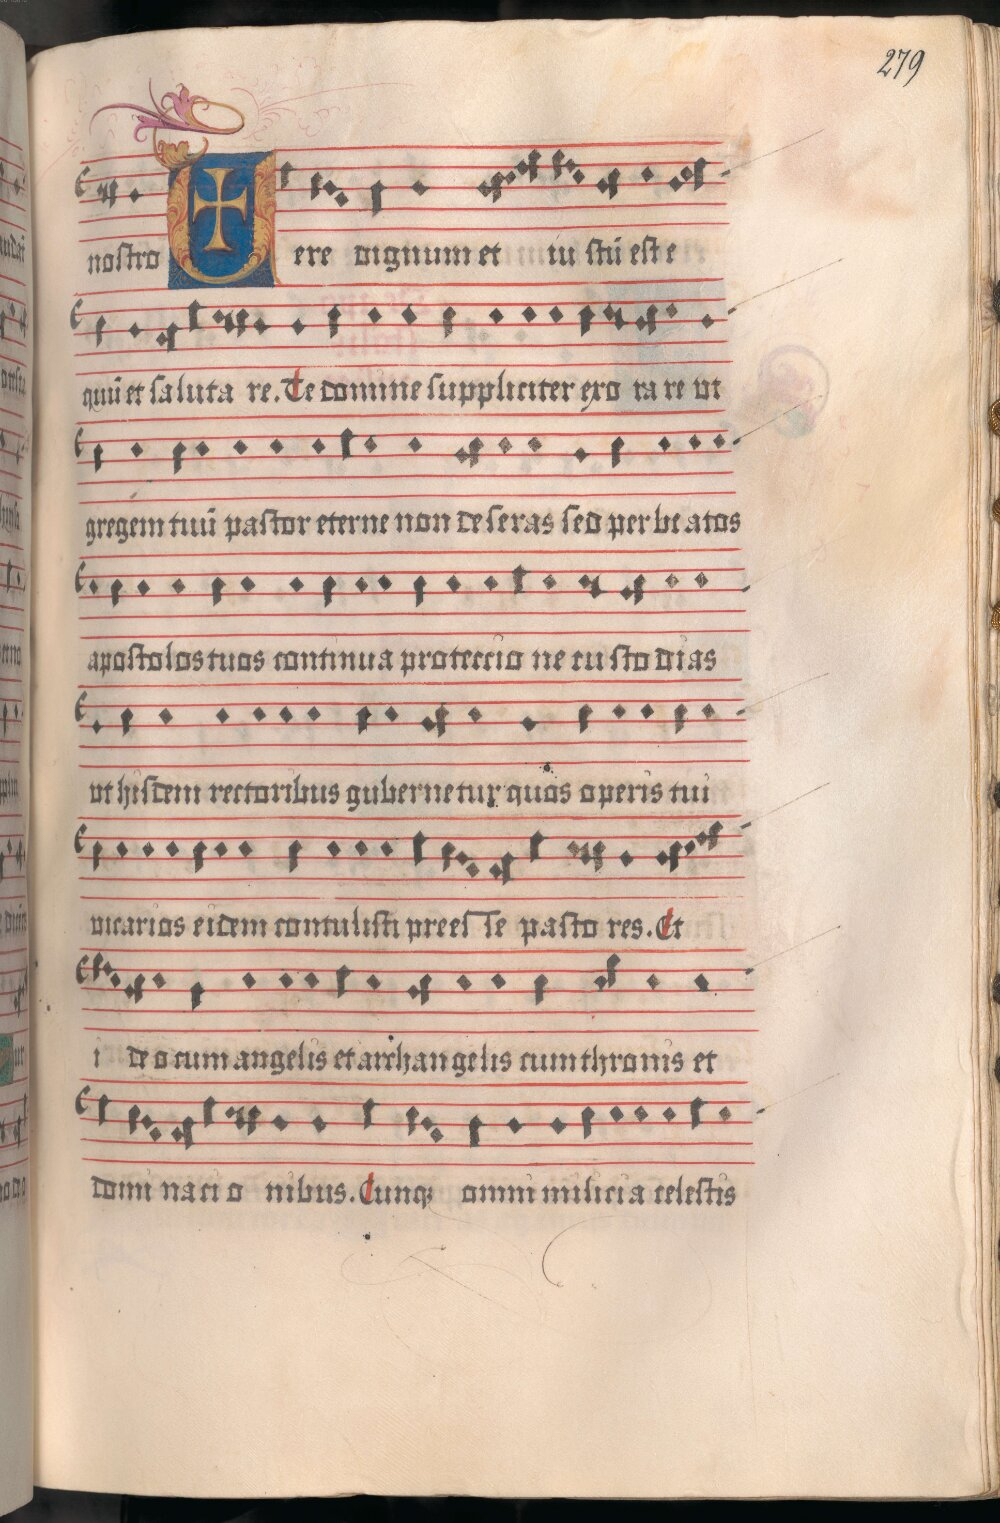 279
nostro Vere dignum et iu stū est e
quū et saluta re. Te domine suppliciter exo ra re vt
gregem tuū pastor eterne non deseras sed per be atos
apostolos tuos continua proteccio ne cu sto dias
vt hisdem rectoribus gubernetur quos operis tui
vicarios eidem contulisti prees se pasto res. Et
i deo cum angelis et archangelis cum thronis et
domi naci o nibus. Cunqꝫ omni milicia celestis